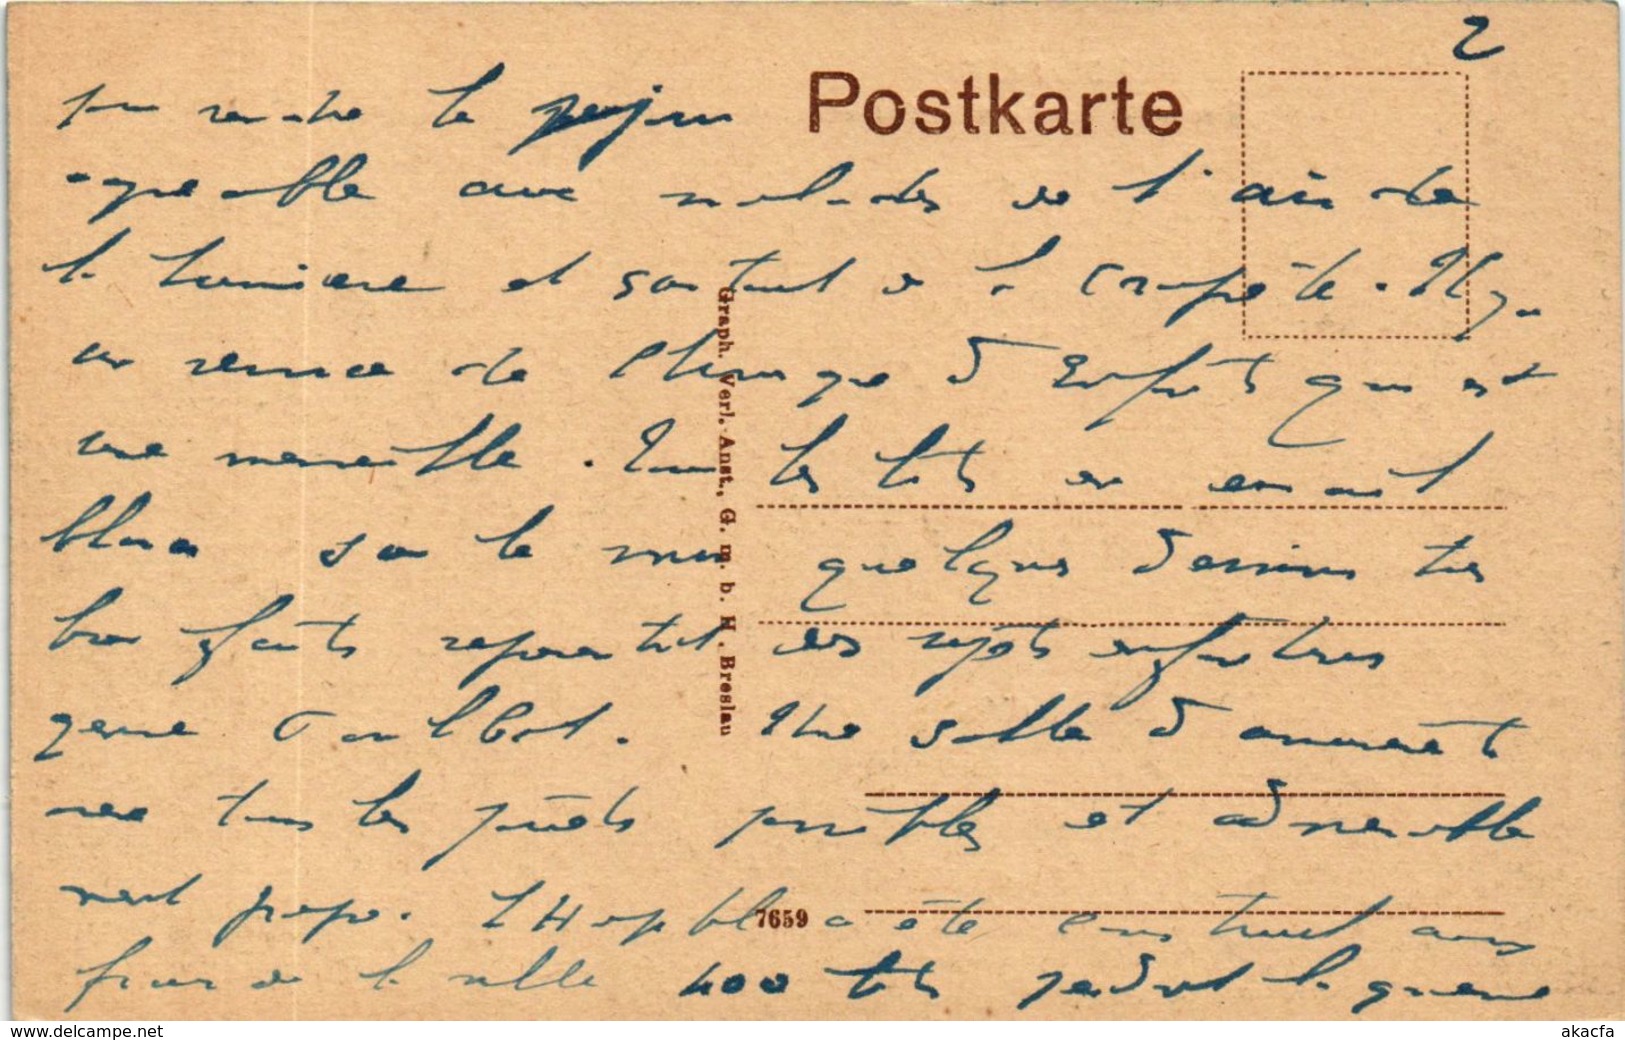 2
Postkarte
pour rendre le séjour
agréable aux malades de l'air de
la lumière et surtout de la propreté. Il y a
un service de chirurgie d'Enfants qui est
une merveille. Tous les lits en émail
blanc sur le mur quelques dessins très
bien faits représentant des sujets enfantins
genre Caulbot. Une salle d'amusements
avec tous les jouets possibles et admirable
ment propre. L'Hopital a été construit aux
frais de la ville 400 lits pendant la guerre
Graph. Verl.-Anst., G. m. b. H., Breslau
7659
www.delcampe.net
akacfa